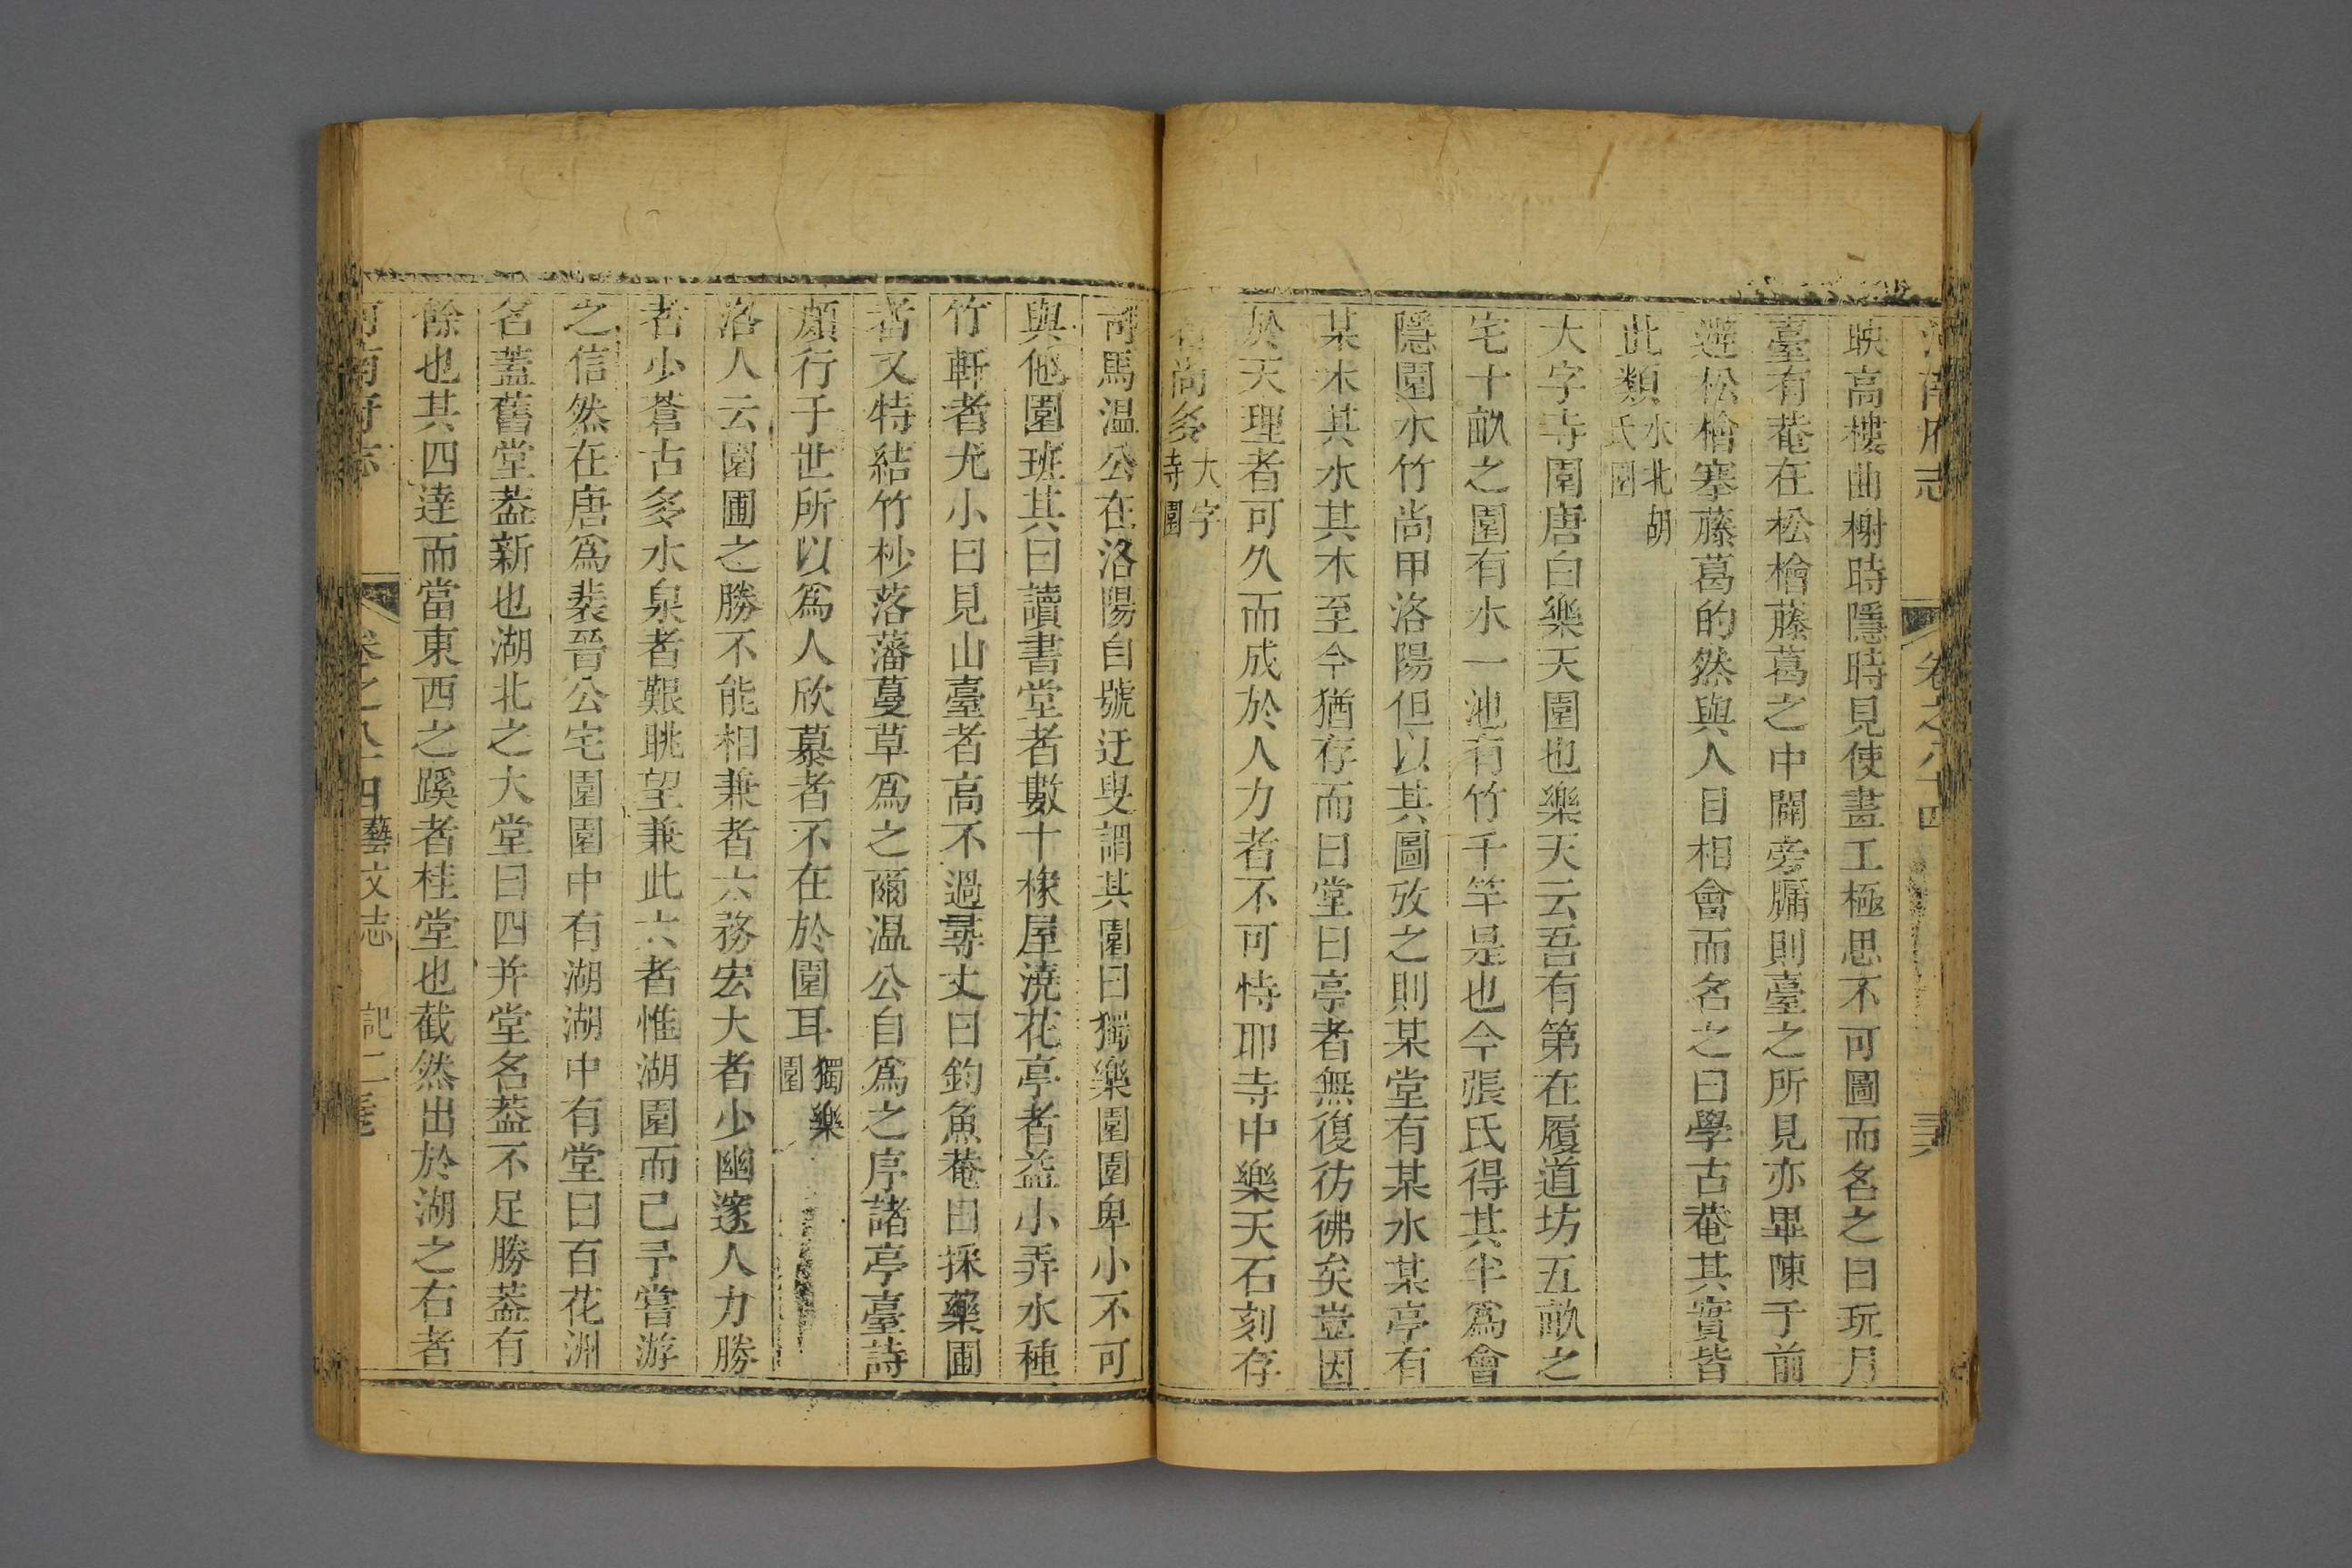 河南府志 卷之八十四 三六
映高樓曲榭時隱時見使畫工極思不可圖而名之曰玩月
臺有菴在松檜藤葛之中闢旁牖則臺之所見亦畢陳于前
避松檜塞藤葛的然與人目相會而名之曰學古菴其實皆
此類水北胡氏園
大字寺園唐白樂天園也樂天云吾有第在履道坊五畝之
宅十畝之園有水一池有竹千竿是也今張氏得其半爲會
隱園水竹尚甲洛陽但以其圖攷之則某堂有某水某亭有
某木其水其木至今猶存而曰堂曰亭者無復彷彿矣豈因
於天理者可久而成於人力者不可恃耶寺中樂天石刻存
者尚多大字寺園
司馬温公在洛陽自號迂叟謂其園曰獨樂園園卑小不可
與他園班其曰讀書堂者數十椽屋澆花亭者益小弄水種
竹軒者尤小曰見山臺者高不過尋丈曰釣魚菴曰採藥圃
者又特結竹杪落藩蔓草爲之爾温公自爲之序諸亭臺詩
頗行于世所以爲人欣慕者不在於園耳獨樂園
洛人云園圃之勝不能相兼者六務宏大者少幽邃人力勝
者少蒼古多水泉者艱眺望兼此六者惟湖園而已予嘗游
之信然在唐爲裴晉公宅園園中有湖湖中有堂曰百花洲
名蓋舊堂葢新也湖北之大堂曰四并堂名葢不足勝葢有
餘也其四達而當東西之蹊者桂堂也截然出於湖之右者
河南府志 卷之八十四 藝文志 記二